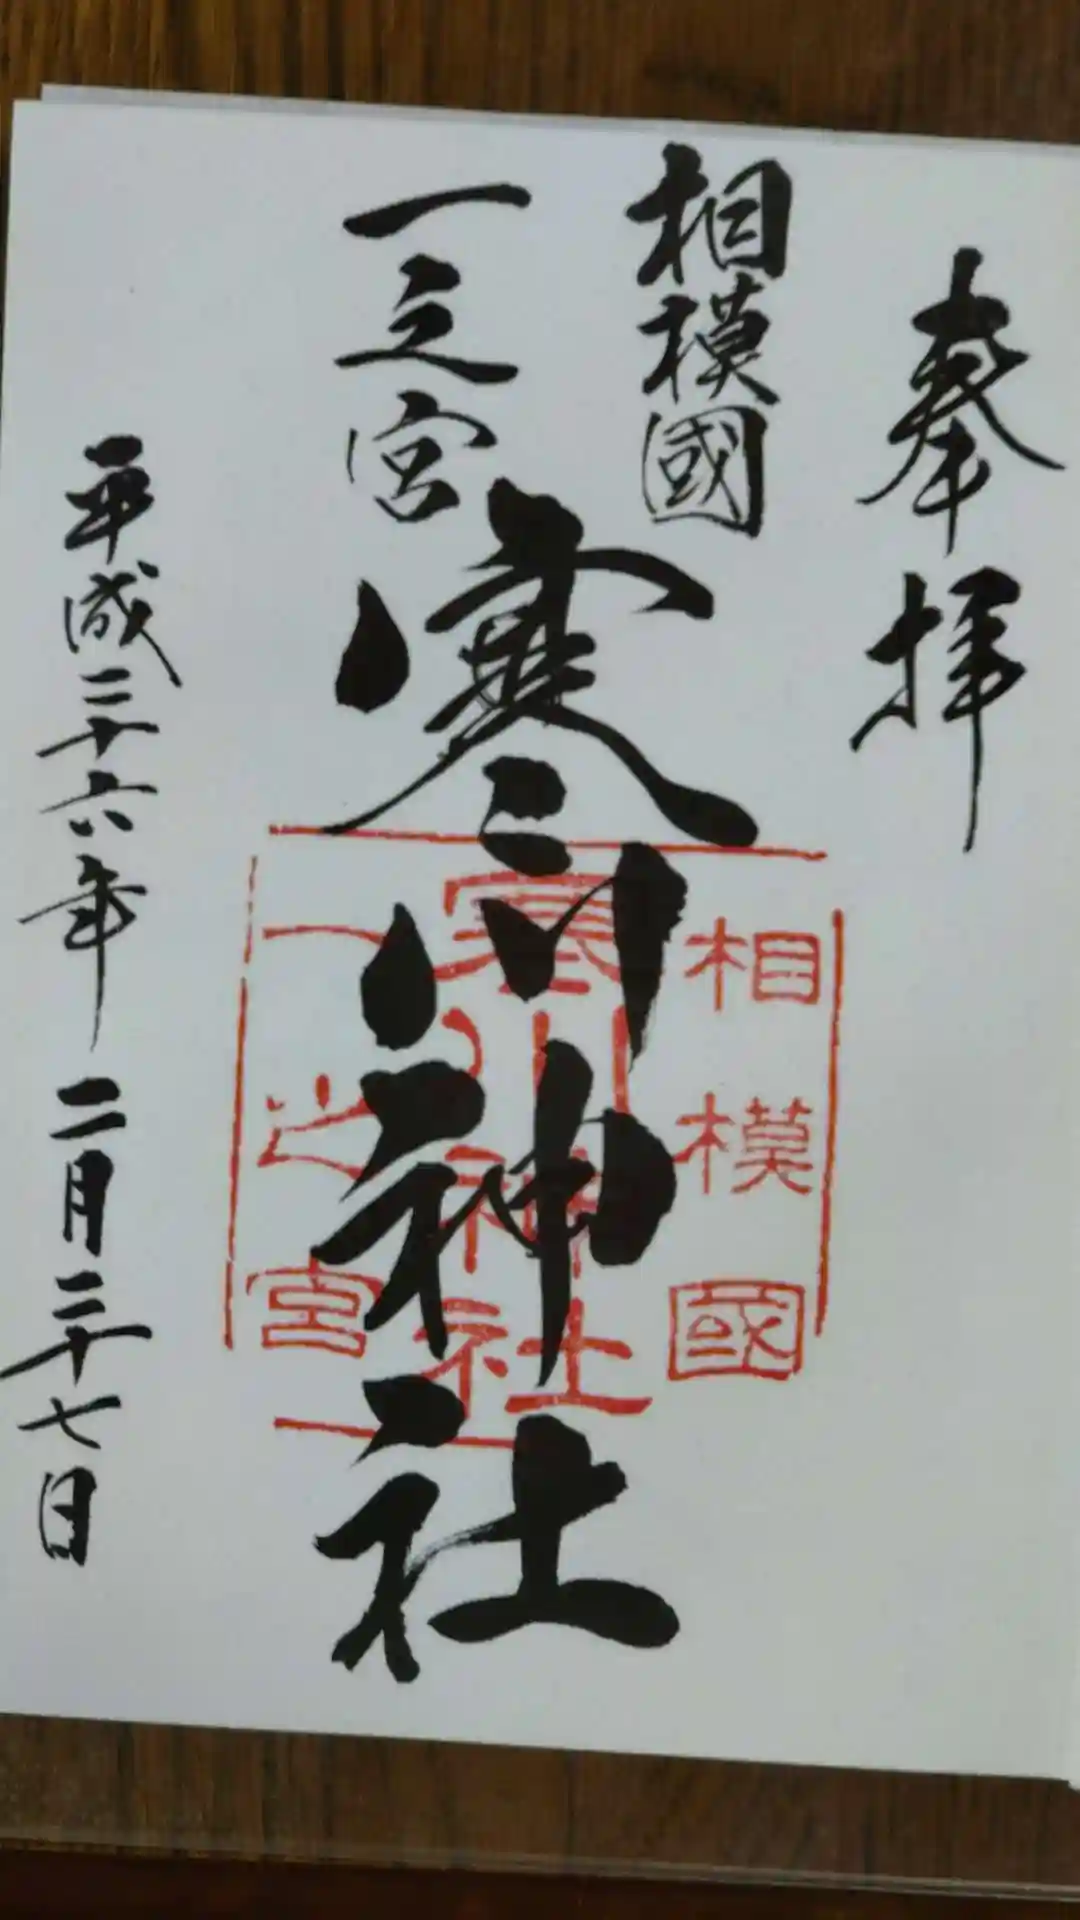 奉拝
相模國
一之宮
寒川神社
相模國
寒川神社
一之宮
平成二十六年二月二十七日